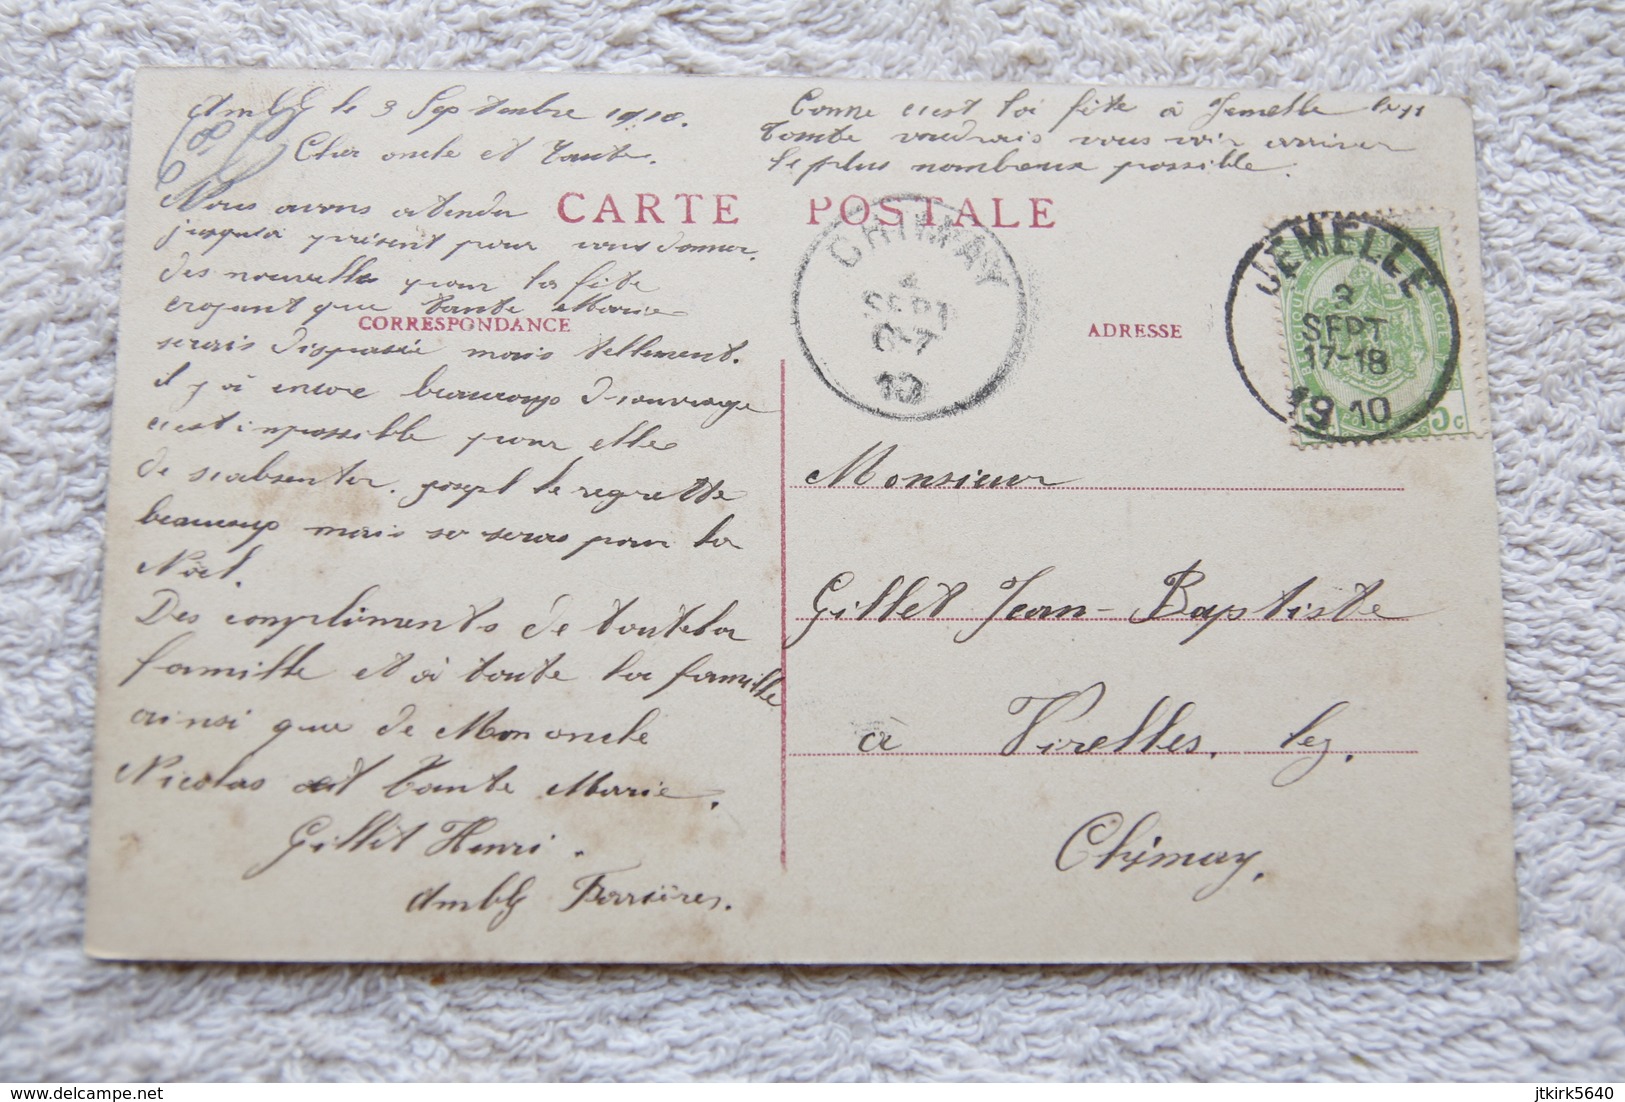 le 3 Septembre 1910.
Cher oncle et Tante.
Nous avons atendu
jusqu'a présent pour vous donner
des nouvelle pour la fête
croyant que tante Marie
serais disposée mais tellement.
il y a encore beaucoup d'ouvrage
c'est impossible pour elle
de s'absenter. joseph le regrette
beaucoup mais se seras pour la
Noël.
Des compliments de toutela
famille et à toute la famille
ainsi que de Mon oncle
Nicolas et tante Marie.
Gillet Henri.
Ferrières.
Comme c'est la fête à Jemelle le 11
tante voudrais vous voir arriver
le plus nombreux possible.
CARTE POSTALE
CORRESPONDANCE
ADRESSE
CHIMAY
4
SEPT
6-7
10
JEMELLE
3
SEPT
17-18
1910
BELGIQUE
BELGIE
5c
Monsieur
Gillet Jean-Baptiste
à Virelles. lez.
Chimay.
delcampe.net
jtkirk5640